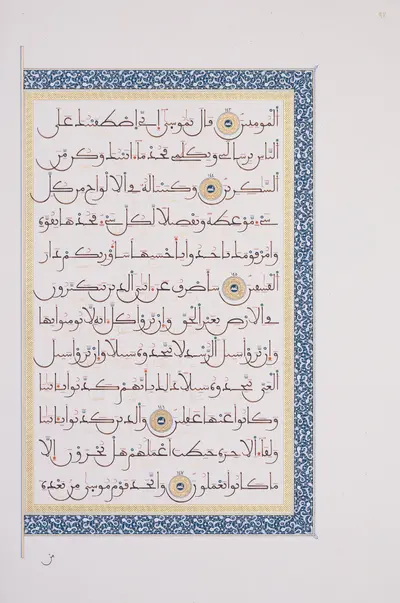 المومنين قال يموسى إنى اصطفيتك على
الناس برسلتى وبكلمى فخذ ما ءاتيتك وكن من
الشكرين وكتبنا له فى الالواح من كل
شىء موعظة وتفصيلا لكل شىء فخذها بقوة
وامر قومك ياخذوا بأحسنها سأوريكم دار
الفسقين سأصرف عن ءايتى الذين يتكبرون
فى الارض بغير الحق وإن يروا كل ءاية لا يومنوا بها
وإن يروا سبيل الرشد لا يتخذوه سبيلا وإن يروا سبيل
الغى يتخذوه سبيلا ذلك بأنهم كذبوا بءايتنا
وكانوا عنها غفلين والذين كذبوا بءايتنا
ولقاء الاخرة حبطت أعملهم هل يجزون إلا
ما كانوا يعملون واتخذ قوم موسى من بعده
من